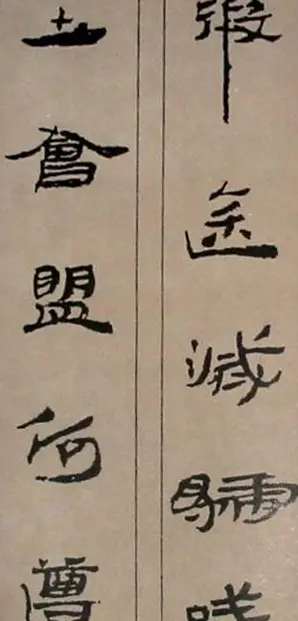 假途滅虢踐
土會盟何遵